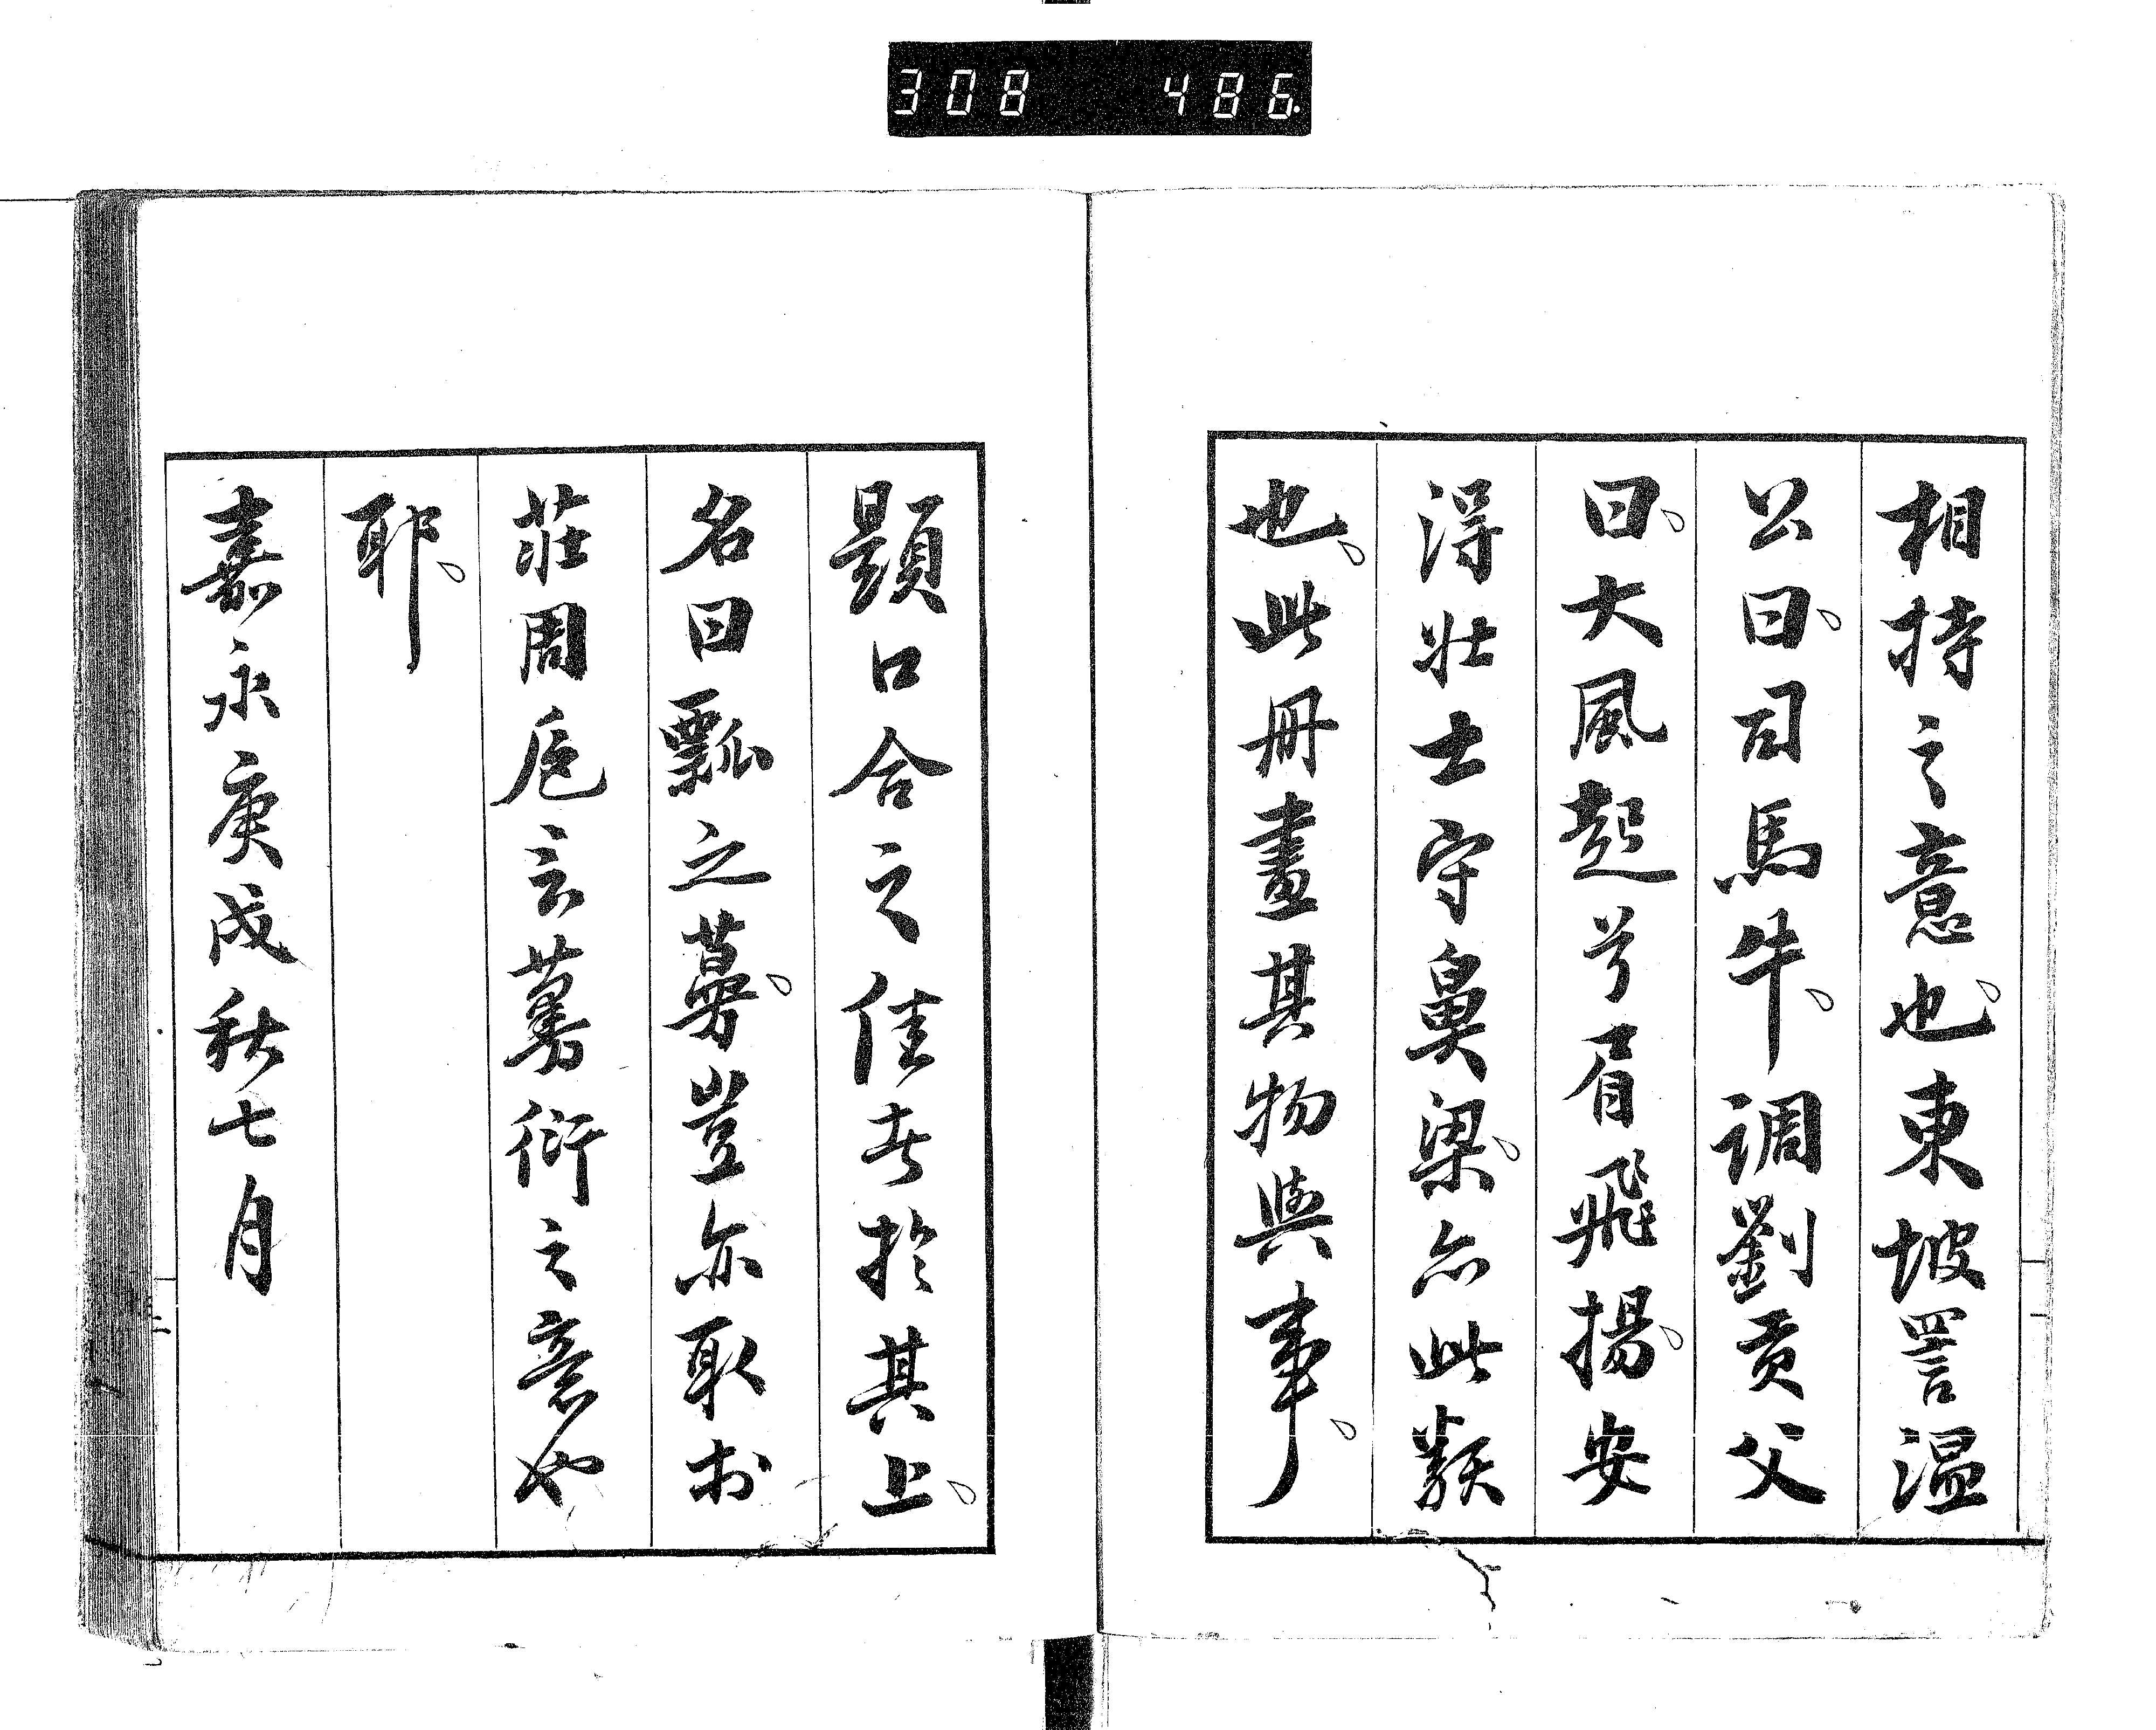 308 486.
相持之意也、東坡詈温
公曰、司馬牛、調劉貢父
曰、大風起兮眉飛揚、安
得壮士守鼻梁、亦此類
也、此冊畫其物與事、
題口合之佳者扵其上、
名曰瓢之蔓、豈亦取扵
莊周巵言蔓衍之意也
耶、
嘉永庚戌秋七月